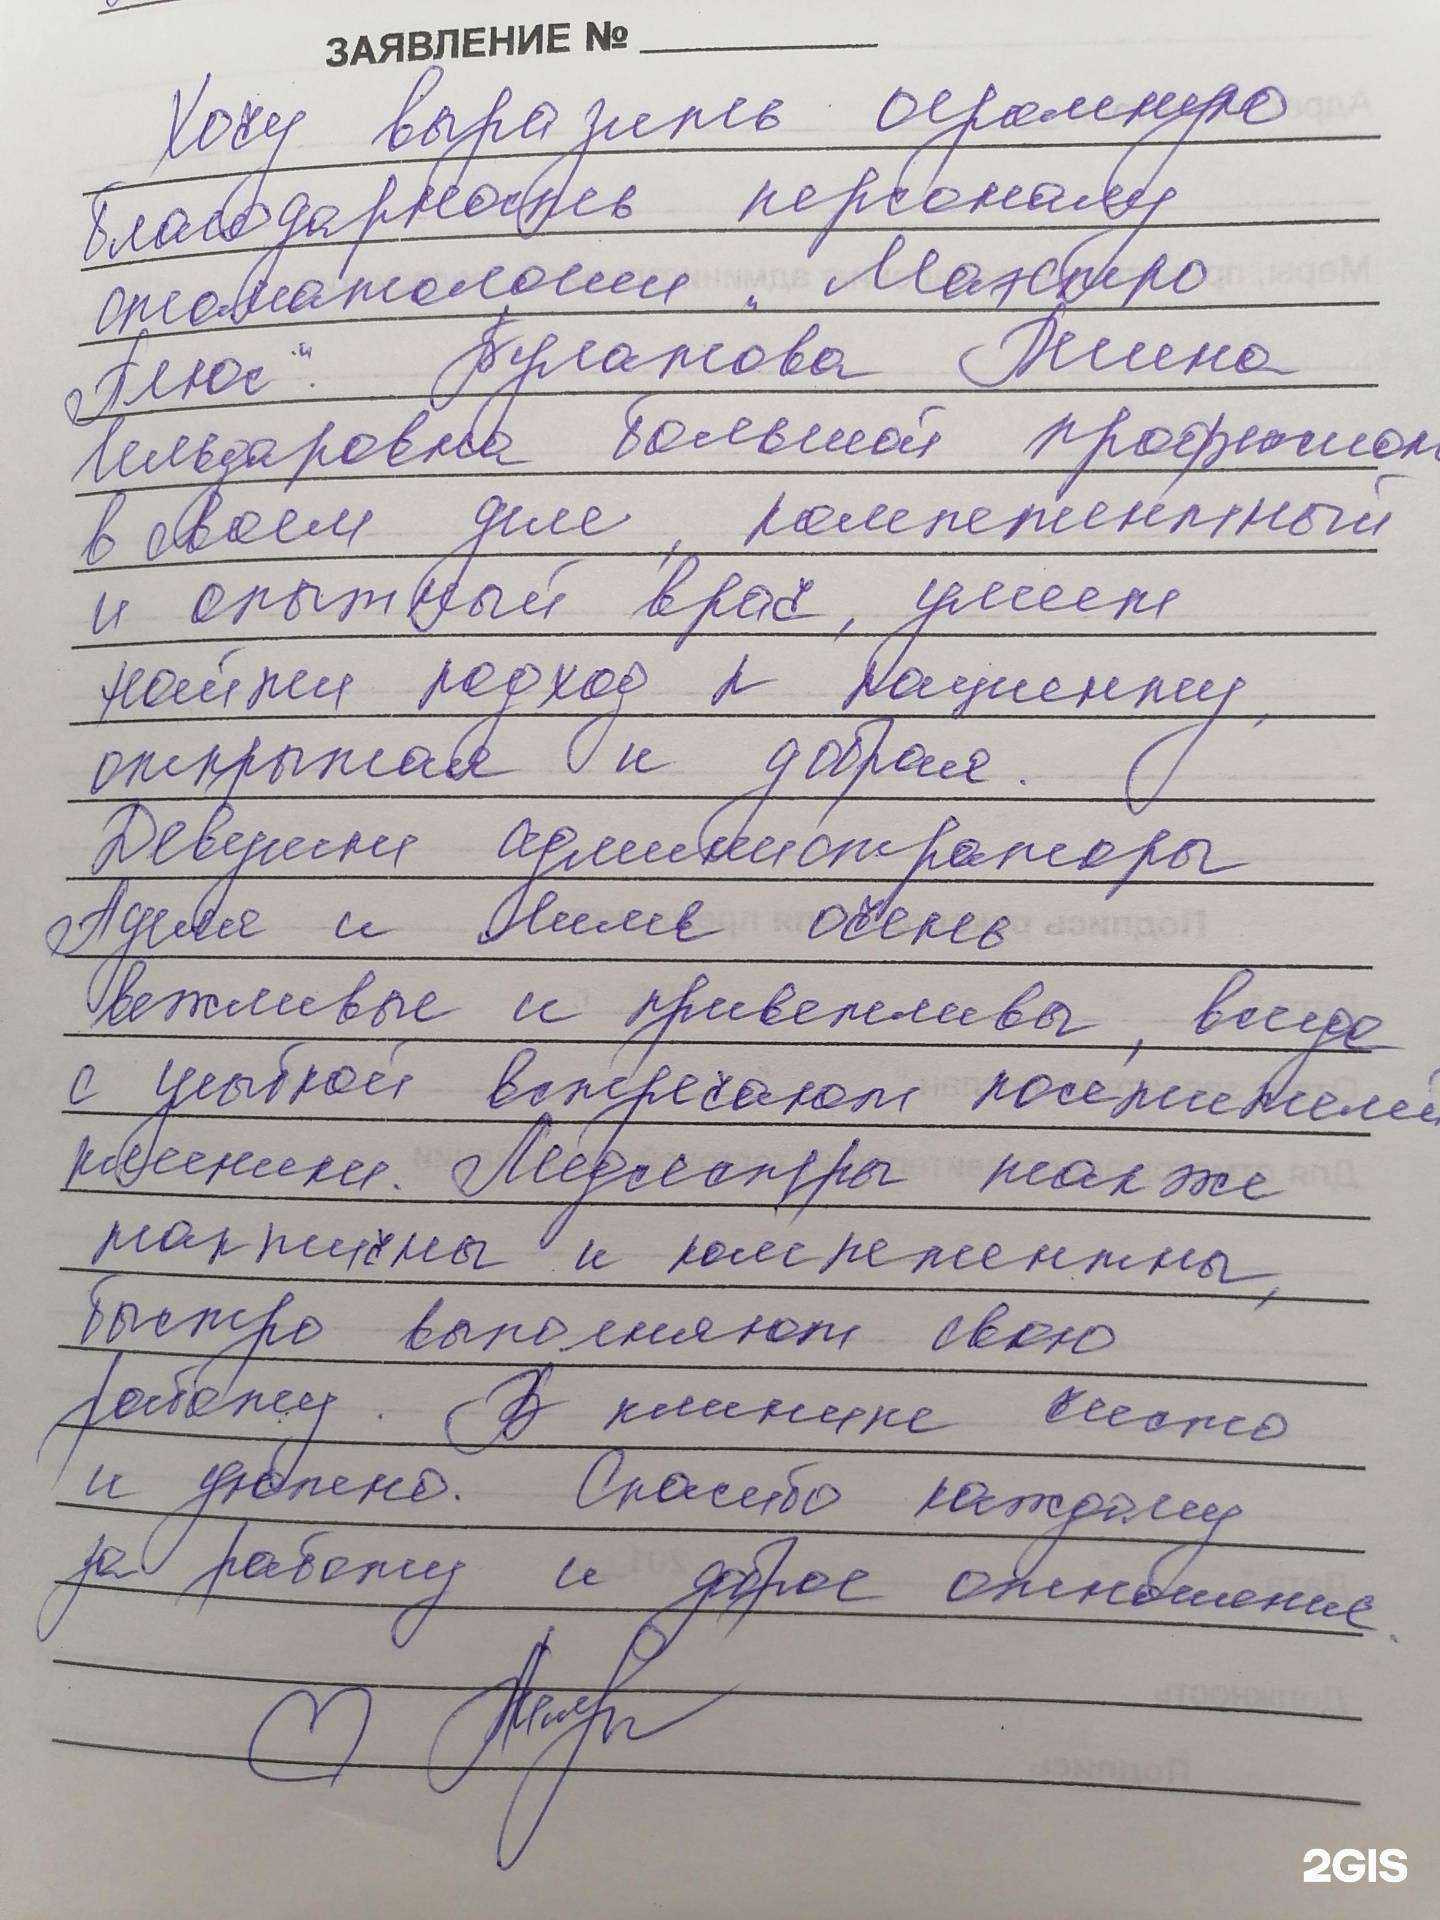 ЗАЯВЛЕНИЕ №
Хочу выразить огромную
благодарность персоналу
стоматологии "Маэстро
Плюс". Булатова
Ильдаровна большой професион
в своем деле, компетентный
и опытный врач, умеет
найти подход к пациенту,
открытая и добрая.
Девушки администраторы
Аделя и очень
вежливые и приветливы, всегда
с улыбкой встречают посетителей
клиники. Медсестры так же
тактичны и компетентны,
быстро выполняют свою
работу. В клинике чисто
и уютно. Спасибо каждому
за работу и доброе отношение.
2GIS